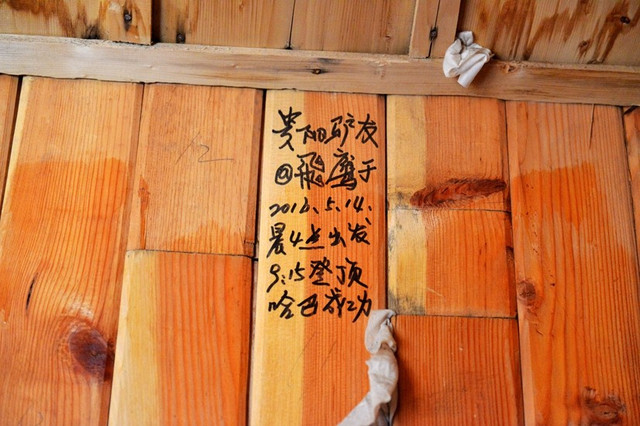 贵阳驴友
@飛鹰于
2016.5.14.
晨4点出发
9:15登顶
哈巴成功